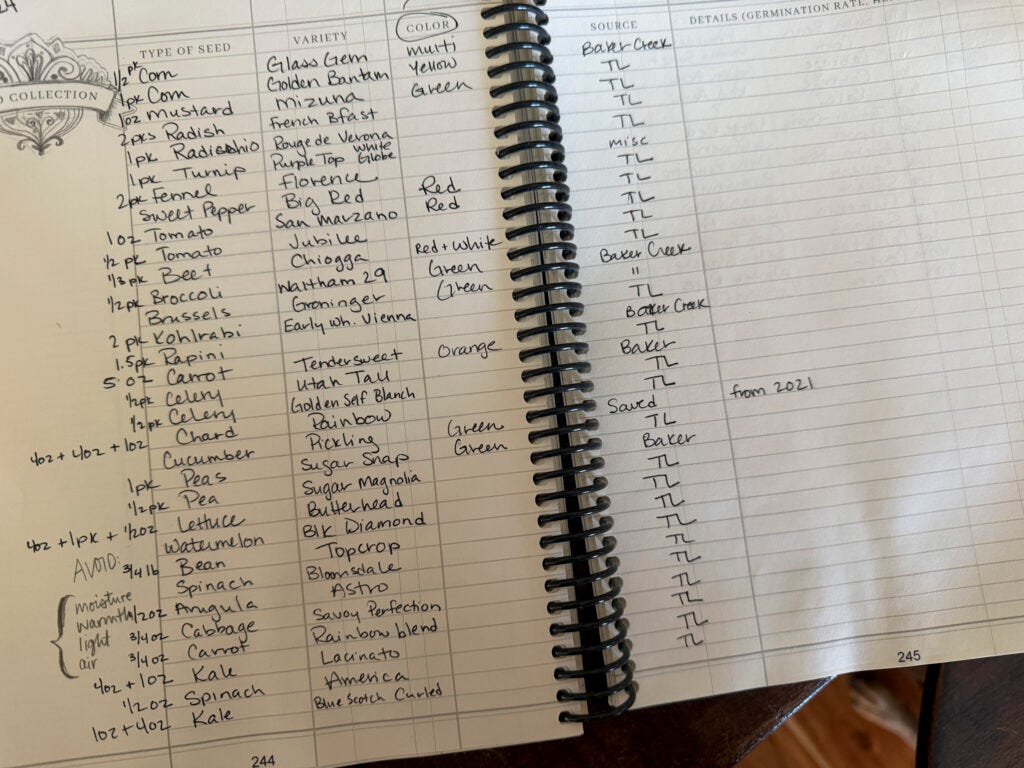 24
D COLLECTION
TYPE OF SEED VARIETY COLOR SOURCE DETAILS (GERMINATION RATE,
1/2 pk Corn Glass Gem multi Baker Creek
1pk Corn Golden Bantam Yellow TL
1oz Mustard Mizuna Green TL
2pks Radish French Bfast TL
1pk Radicchio Rouge de Verona TL
1pk Turnip Purple Top White Globe misc
2pk Fennel Florence TL
Sweet Pepper Big Red Red TL
1oz Tomato San Marzano Red TL
1/2 pk Tomato Jubilee TL
1/3 pk Beet Chiogga Red + White TL
1/2pk Broccoli Waltham 29 Green Baker Creek
Brussels Groninger Green "
2 pk Kohlrabi Early Wh. Vienna TL
1.5pk Rapini Baker Creek
5.oz Carrot Tendersweet Orange TL
1/2pk Celery Utah Tall Baker
1/2pk Celery Golden Self Blanch TL
4oz + 4oz + 1oz Chard Rainbow TL
Cucumber Pickling Green Saved from 2021
1pk Peas Sugar Snap Green TL
1/2pk Pea Sugar Magnolia Baker
4oz + 1pk + 1/2oz Lettuce Butterhead TL
Watermelon Blk Diamond TL
3/4 lb Bean Topcrop TL
Spinach Bloomsdale TL
1/2oz Arugula Astro TL
3/4oz Cabbage Savoy Perfection TL
3/4oz Carrot Rainbow blend TL
4oz + 1oz Kale Lacinato TL
1/2oz Spinach America TL
1oz + 4oz Kale Blue Scotch Curled TL
AVOID:
moisture
warmth
light
air
244
245